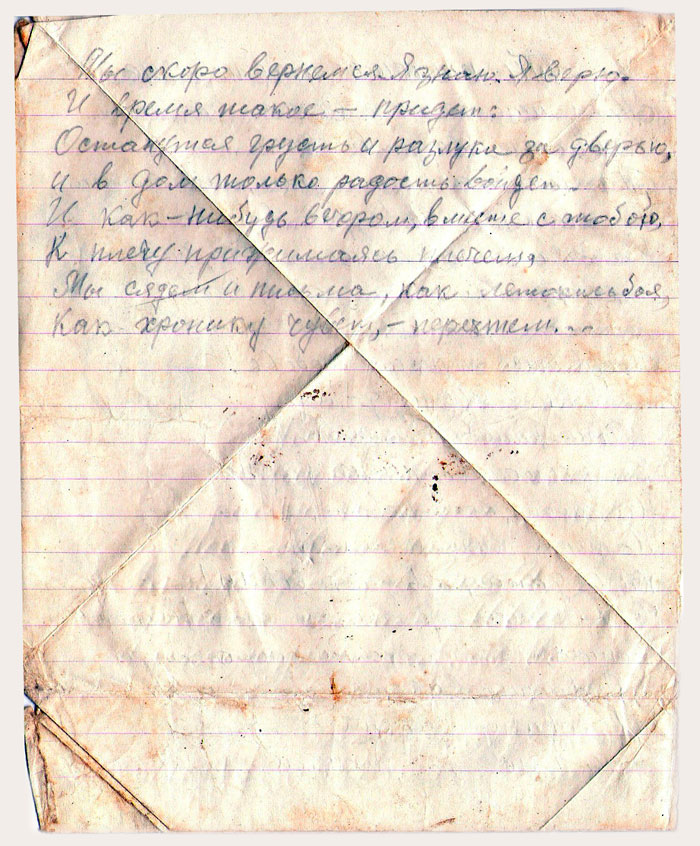 Мы скоро вернемся. Я знаю. Я верю.
И время такое – придет:
Останутся грусть и разлука за дверью,
и в дом только радость войдет.
И как-нибудь вечером, вместе с тобою,
К плечу прижимаясь плечем,
Мы сядем и письма, как летопись боя,
Как хронику чувств, – перечтем...